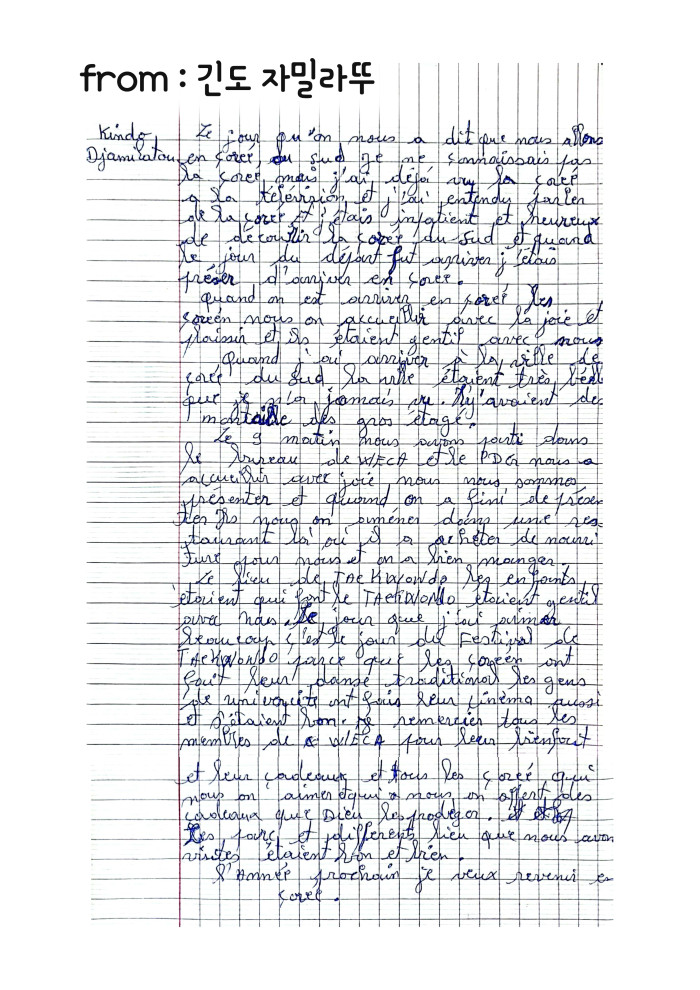 from : 긴도 자밀라뚜
Kindo
Djamilatou
Le jour qu'on nous a dit que nous allons
en çoreé, du sud je ne connaissais pas
la çoreé mais j'ai déjà vu la çoreé
a la télévision et j'ai entendu parler
de la çoreé et j'étais inpatient et heureux
de découvrir la çoreé du-Sud et quand
le jour du départ fut arriver j'étais
préser d'arriver en çoreé.
quand on est arriver en çoreé les
çoreén nous on accueillir avec la joie et
plaissir et ils étaient gentif avec nous
Quand j'ai arriver à la ville de
çoreé du Sud la ville étaient très beal
que je n'a jamais vu. Il y'avaient de
des gros étage.
Le 9 matin nous avons parti dans
le bureau de WECA et le PDG nous a
accueillir avec joie nous nous sommes
présenter et quand on a fini de présen
ter Ils nous on amener dans une res-
taurant là où il a acheter de nourri
ture pour nous et on a bien manger.
Le lieu de TAEKWONDO les enfants
étaient qui font le TAEKWONDO étaient gentil
avec nous. Le jour que j'ai aimer
beaucoup ç'est le jour du Festival de
TAEKWONDO parce que les çoreén ont
fait leur danse traditional les gens
de univerçité ont fais leur cinéma aussi
et s'étaient bon. je remercier tous les
membres de WECA pour leur bienfait
et leur cadeaux et tous les çoreé qui
nous on aimer et qui nous on offert des
cadeaux que Dieu les prodeger.
Les parç et différents lieu que nous avon
visités étaient bon et bien.
l'Année prochain je veux revenir en
çoreé.